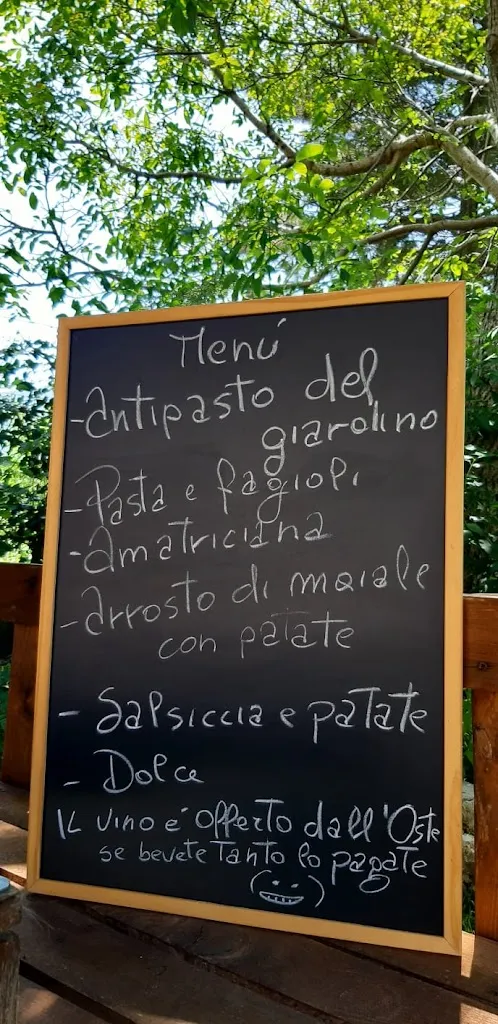 Menú
- Antipasto del
giardino
- Pasta e fagioli
- Amatriciana
- Arrosto di maiale
con patate
- Salsiccia e patate
- Dolce
IL vino é offerto dall'Oste
se bevete tanto lo pagate